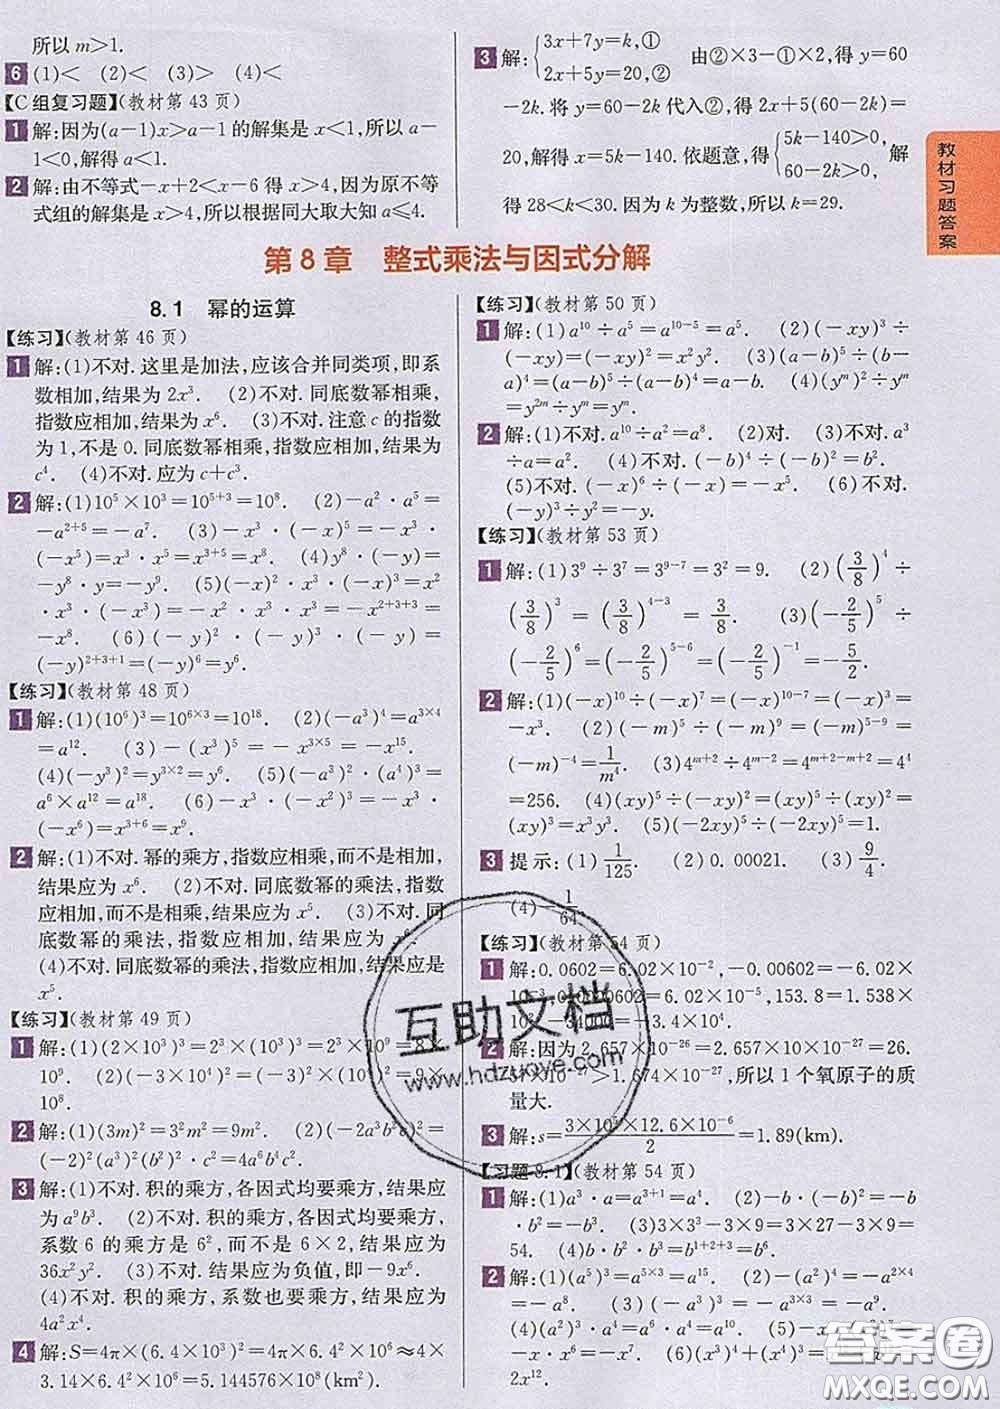 所以 m>1.
6 (1)< (2)< (3)> (4)<
【C组复习题】(教材第 43 页)
1 解:因为(a-1)x>a-1 的解集是 x<1,所以 a-
1<0,解得 a<1.
2 解:由不等式-x+2<x-6 得 x>4,因为原不等
式组的解集是 x>4,所以根据同大取大知 a≤4.
3 解:{3x+7y=k,① 2x+5y=20,② 由②×3-①×2,得 y=60
-2k.将 y=60-2k 代入②,得 2x+5(60-2k)=
20,解得 x=5k-140.依题意,得{5k-140>0, 60-2k>0, 解
得 28<k<30.因为 k 为整数,所以 k=29.
教材习题答案
第 8 章 整式乘法与因式分解
8.1 幂的运算
【练习】(教材第 46 页)
1 解:(1)不对.这里是加法,应该合并同类项,即系
数相加,结果为 2x³. (2)不对.同底数幂相乘,
指数应相加,结果为 x⁶. (3)不对.注意 c 的指数
为 1,不是 0.同底数幂相乘,指数应相加,结果为
c⁴. (4)不对.应为 c+c³.
2 解:(1)10⁵×10³=10⁵⁺³=10⁸. (2)-a²·a⁵=
-a²⁺⁵=-a⁷. (3)-x³·(-x)⁵=-x³·
(-x⁵)=x³·x⁵=x³⁺⁵=x⁸. (4)y⁸·(-y)=
-y⁸·y=-y⁹. (5)(-x)²·x³·(-x)³=
x²·x³·(-x³)=-x²·x³·x³=-x²⁺³⁺³=
-x⁸. (6)(-y)²·(-y)³·(-y)=
(-y)²⁺³⁺¹=(-y)⁶=y⁶.
【练习】(教材第 48 页)
1 解:(1)(10⁶)³=10⁶ˣ³=10¹⁸. (2)(-a³)⁴=a³ˣ⁴
=a¹². (3)-(x³)⁵=-x³ˣ⁵=-x¹⁵.
(4)(-y³)²=y³ˣ²=y⁶. (5)(-a³)²·(a⁴)³=
a⁶×a¹²=a¹⁸. (6)-x³·(-x²)³=-x³·
(-x⁶)=x³⁺⁶=x⁹.
2 解:(1)不对.幂的乘方,指数相乘,而不是相加,
结果应为 x⁶. (2)不对.同底数幂的乘法,指数
应相加,而不是相乘,结果应为 x⁸. (3)不对.同
底数幂的乘法,指数应相加,结果应为 x⁶.
(4)不对.同底数幂的乘法,指数应相加,结果应是
x⁵.
【练习】(教材第 49 页)
1 解:(1)(2×10³)³=2³×(10³)³=2³×10⁹=8×
10⁹. (2)(-3×10⁴)²=(-3)²×(10⁴)²=9×
10⁸.
2 解:(1)(3m)²=3²m²=9m². (2)(-2a³b²c)²=
(-2)²(a³)²(b²)²·c²=4a⁶b⁴c².
3 解:(1)不对.积的乘方,各因式均要乘方,结果应
为 a⁹b³. (2)不对.积的乘方,各因式均要乘方,
系数 6 的乘方是 6²,而不是 6×2,结果应为
36x²y². (3)不对.结果应为负值,即-9x⁶.
(4)不对.积的乘方,系数也要乘方,结果应为
4a²x⁴.
4 解:S=4π×(6.4×10³)²=4π×6.4²×10⁶≈4×
3.14×6.4²×10⁶=5.144576×10⁸(km²).
【练习】(教材第 50 页)
1 解:(1)a¹⁰÷a⁵=a¹⁰⁻⁵=a⁵. (2)(-xy)³÷
(-xy)=(-xy)²=x²y². (3)(a-b)⁵÷(b-
a)⁴=(a-b)⁵÷(a-b)⁴=a-b. (4)(yⁿ)²÷yⁿ=
y²ⁿ÷yⁿ=yⁿ.
2 解:(1)不对.a¹⁰÷a²=a⁸. (2)对. (3)不对.a³
÷a=a². (4)不对.(-b)⁴÷(-b)²=b².
(5)不对.(-x)⁶÷(-x)=-x⁵. (6)不对.
(-y)³÷(-y)²=-y.
【练习】(教材第 53 页)
1 解:(1)3⁹÷3⁷=3⁹⁻⁷=3²=9. (2)(3/8)⁴÷
(3/8)³=(3/8)⁴⁻³=3/8. (3)(-2/5)⁵÷
(-2/5)⁶=(-2/5)⁵⁻⁶=(-2/5)⁻¹=-5/2.
2 解:(1)(-x)¹⁰÷(-x)⁷=(-x)¹⁰⁻⁷=(-x)³=
-x³. (2)(-m)⁵÷(-m)⁹=(-m)⁵⁻⁹=
(-m)⁻⁴=1/m⁴. (3)4ᵐ⁺²÷4ᵐ⁻²=4ᵐ⁺²⁻ᵐ⁺²=4⁴
=256. (4)(xy)⁵÷(-xy)²=(xy)⁵÷(xy)²=
(xy)³=x³y³. (5)(-2xy)⁵÷(-2xy)⁵=1.
3 提示:(1)1/125. (2)0.00021. (3)9/4.
(4)-1/64.
【练习】(教材第 54 页)
1 解:0.0602=6.02×10⁻²,-0.00602=-6.02×
10⁻³,0.0000602=6.02×10⁻⁵,153.8=1.538×
10²,-34000=-3.4×10⁴.
2 解:因为 2.657×10⁻²⁶=2.657×10×10⁻²⁷=26.
57×10⁻²⁷>1.674×10⁻²⁷,所以 1 个氧原子的质
量大.
3 解:s=3×10⁵×12.6×10⁻⁶/2=1.89(km).
【习题 8.1】(教材第 54 页)
1 解:(1)a³·a=a³⁺¹=a⁴. (2)(-b)²=-b
·b²=-b³. (3)3×3³-3×3²=3×27-3×9=
54. (4)b·b²·b³=b¹⁺²⁺³=b⁶.
2 解:(1)(a⁵)³=a⁵ˣ³=a¹⁵. (2)-(a²)⁴=-a²ˣ⁴
=-a⁸. (3)(-a³)³=-a³ˣ³=-a⁹.
(4)(a²)³·a⁵=a⁶·a⁵=a¹¹.
x¹². (6)(-x⁴)³
2x¹².
互助文档
www.hdzuoye.com
答案圈
MXQE.COM